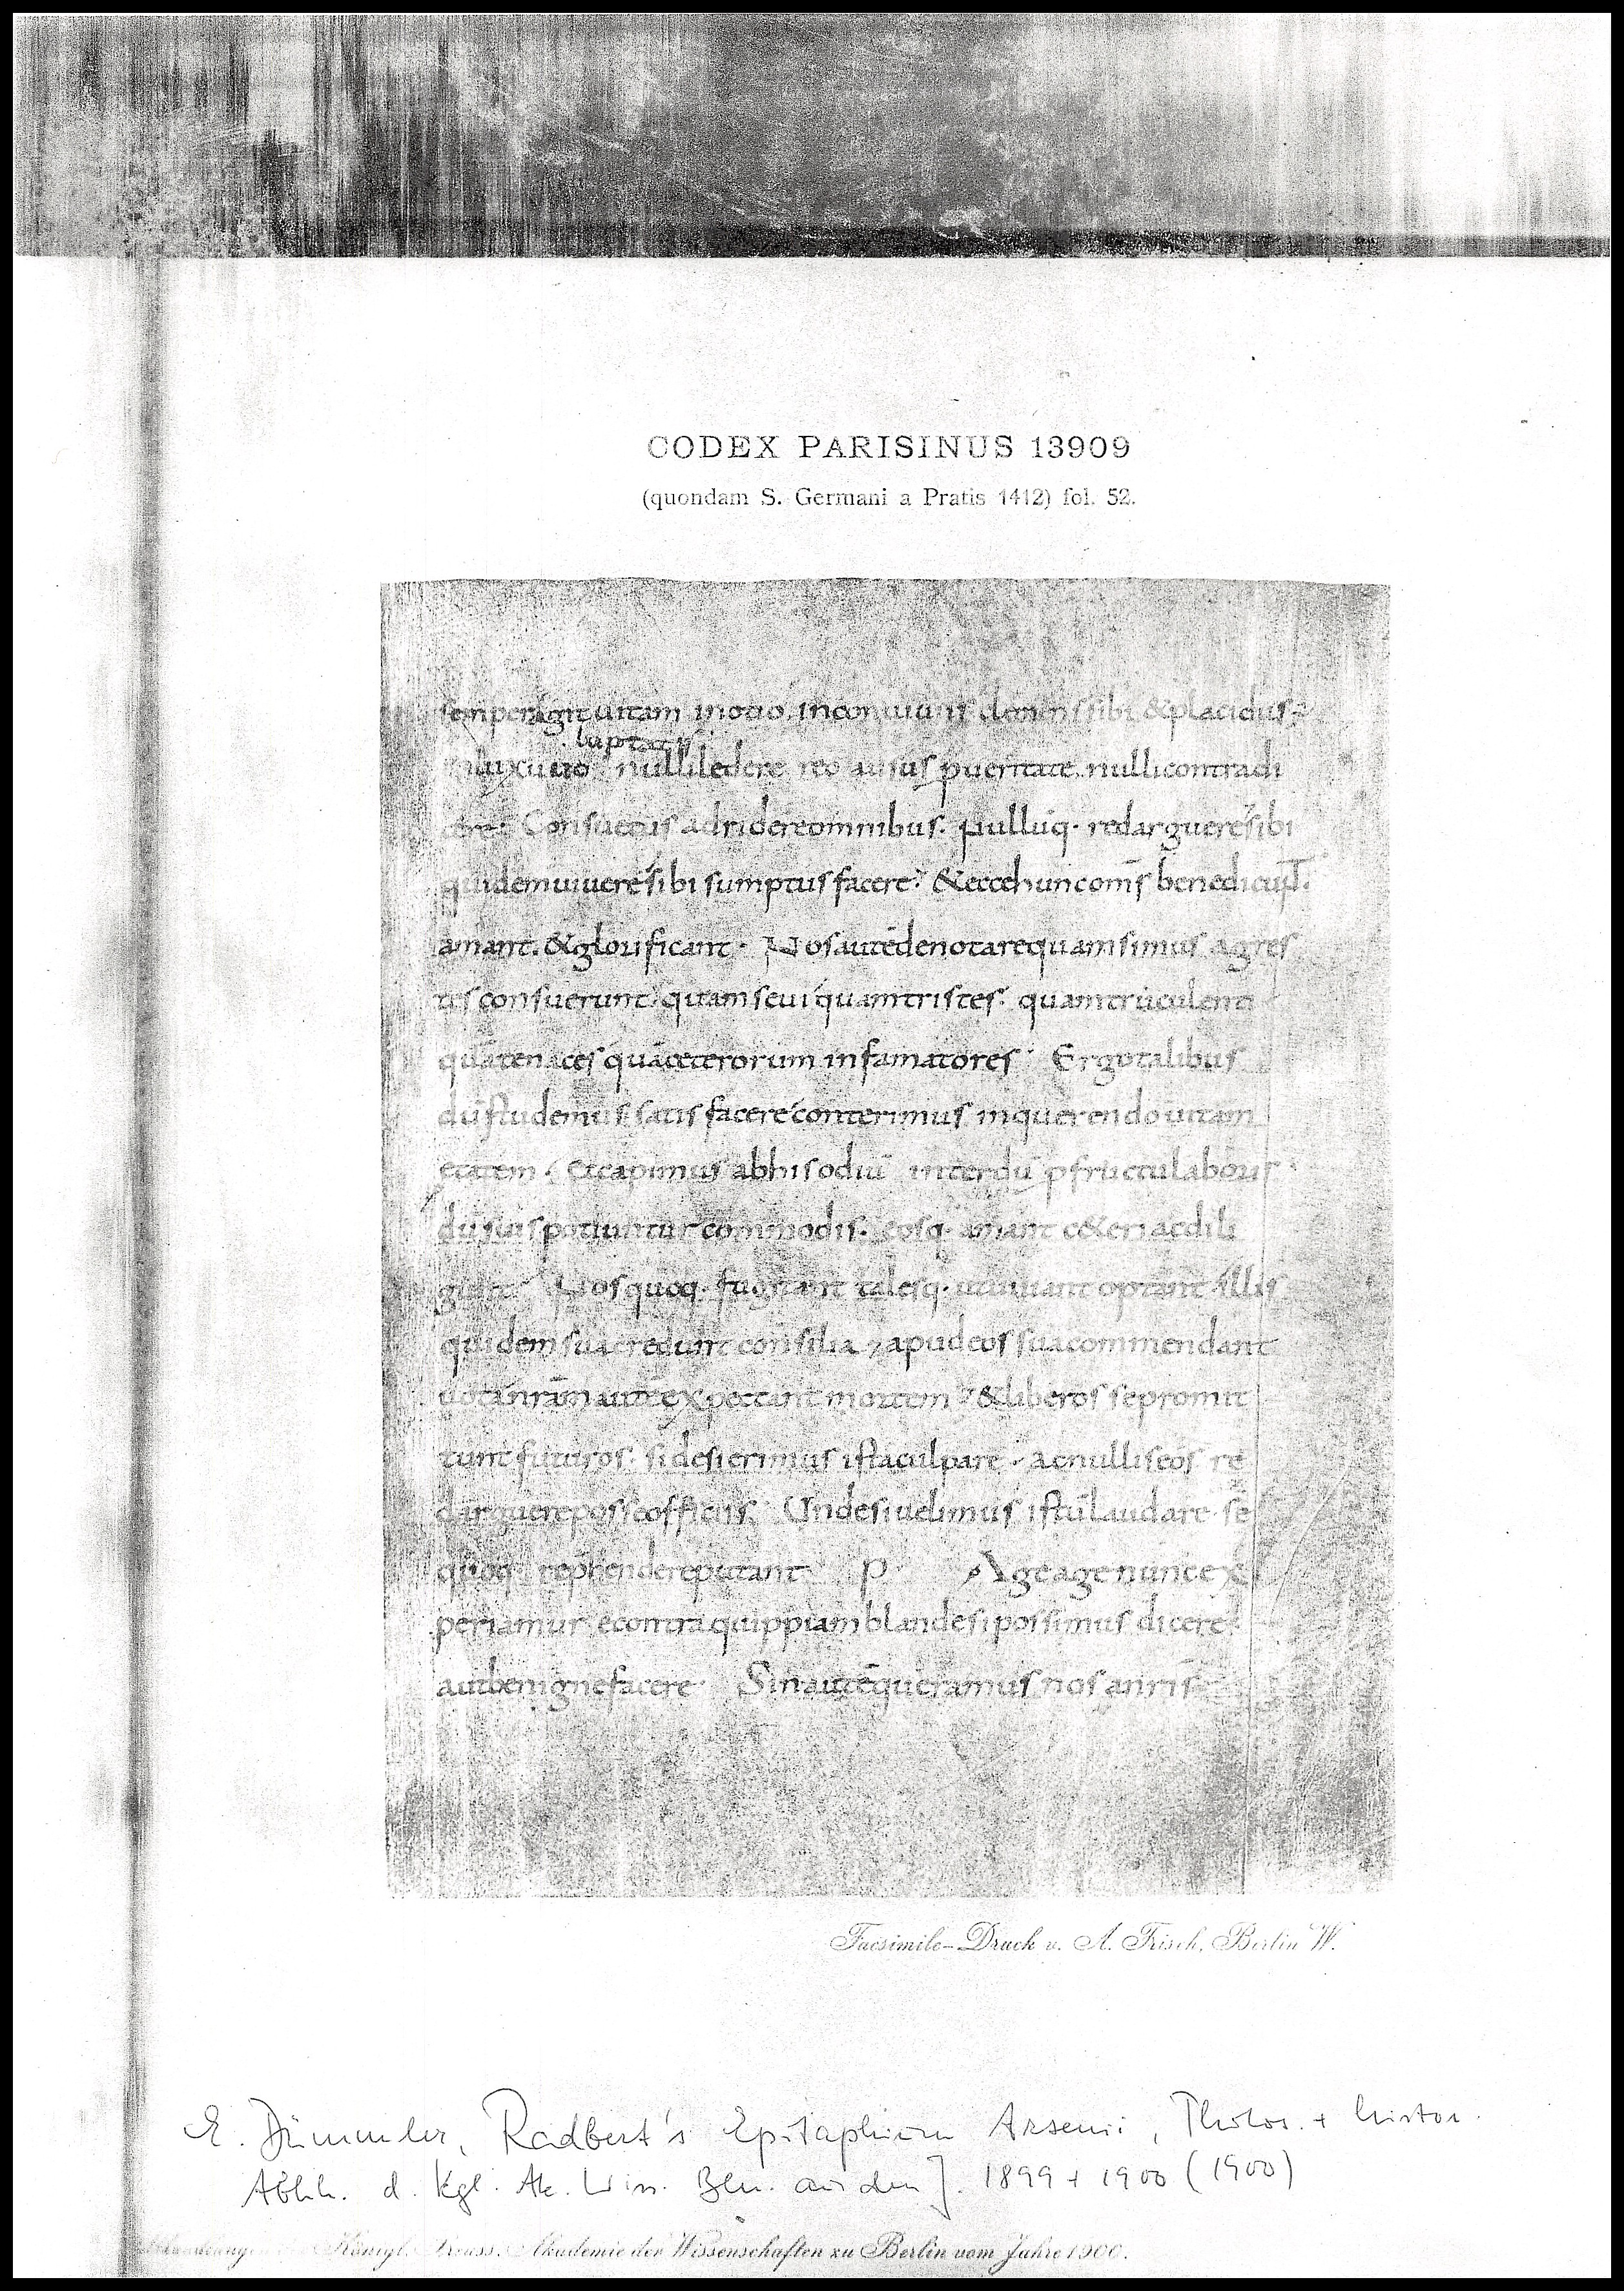 CODEX PARISINUS 13909
(quondam S. Germani a Pratis 1412) fol. 52.
semper agit uitam inotio, inconuiuiis clemens sibi &placidus
luptatis
nulliledere puertate. nullicontradi
cere. Consuetus adridereomnibus. Nulluq· redarguere sibi
quidemuiuere sibi sumptus facere. &eccehuncom̄s benedicunt.
amant. &glorificant· Nosautēdenotarequamsimus agres
tes consuerunt quamseui quamtristes. quamtruculenti
quātenaces quāceterorum infamatores· Ergotalibus
dūstudemus satis facere conterimus inquerendouitam
etatem. &capimus abhisodiū interdū pfructulaboris
dūsuispotiuntur commodis. eosq· amant c&eriacdili
gunt. Nosquoq· fugitant talesq· utuiuant optant. illis
quidemsuacredunt consilia, apudeos suacommendant
uota nr̄am autē expectant mortem &liberos sepromit
tunt futuros. sidesierimus istaculpare. acnulliseos re
darguereposseofficiis. Undesiuelimus istūlaudare se
quoq· rephendereputant P. Ageagenuncex
periamur econtra quippiamblandesipossimus dicere.
autbenignefacere· Sinautēqueramus nos anr̄is
Facsimile-Druck v. A. Frisch, Berlin W.
E. Dümmler, Radbert's Epitaphium Arsenii, Philos. + histor.
Abhh. d. Kgl. Ak. Wiss. Bln. aus den J. 1899 + 1900 (1900)
Königl. Preuss. Akademie der Wissenschaften zu Berlin vom Jahre 1900.